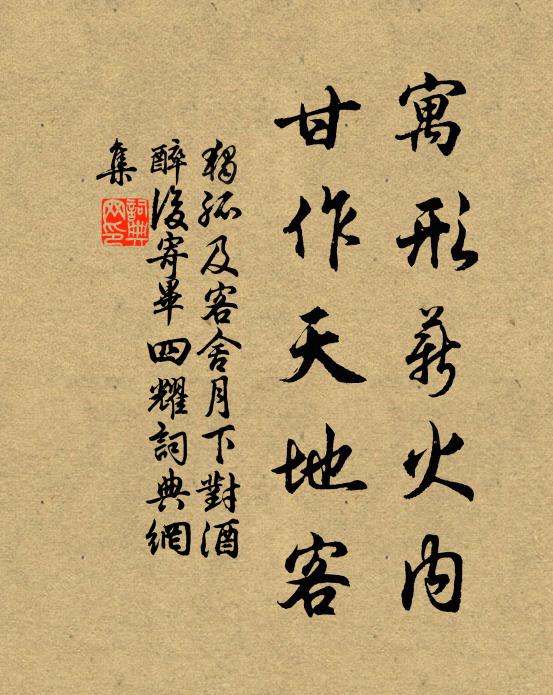 寓形薪火内
甘作天地客
獨孤及客舍月下對酒
醉後寄畢四耀詞典網
集
詞典網印